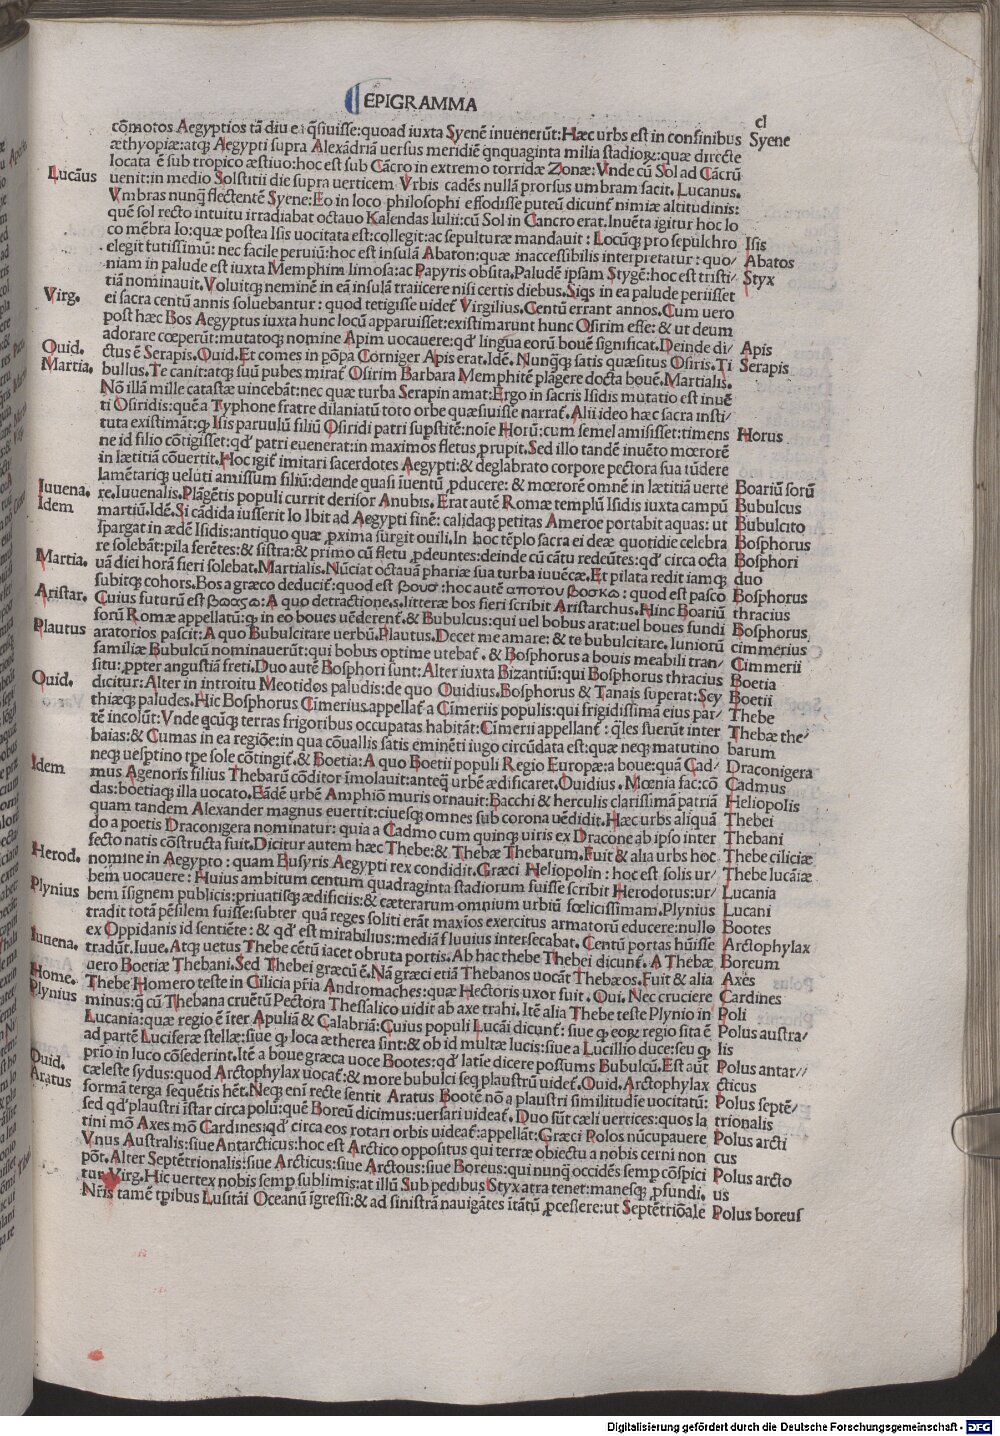 EPIGRAMMA
cl
cōmotos Aegyptios tā diu eū q̄siuisse:quoad iuxta Syenē inuenerūt:Hæc urbs est in confinibus Syene
æthyopiæ:atq; Aegypti supra Alexādriā uersus meridiē qnquaginta milia stadioꝝ:quæ directe
locata ē sub tropico æstiuo:hoc est sub Cācro in extremo torridæ Zonæ:Vnde cū Sol ad Cācrū
Lucāus uenit:in medio Solstitii die supra uerticem Vrbis cadēs nullā prorsus umbram facit. Lucanus.
Vmbras nunq̄ flectentē Syene:Eo in loco philosophi effodisse puteū dicunt nimiæ altitudinis:
quē sol recto intuitu irradiabat octauo Kalendas Iulii:cū Sol in Cancro erat.Inuēta igitur hoc lo
co mēbra Io:quæ postea Isis uocitata est:collegit:ac sepulturæ mandauit : Locūq; pro sepulchro Isis
elegit tutissimū: nec facile peruiū:hoc est insulā Abaton:quæ inaccessibilis interpretatur : quo/ Abatos
niam in palude est iuxta Memphim limosa:ac Papyris obsita.Paludē ipsam Stygē:hoc est tristi/ Styx
tiā nominauit.Voluitq; neminē in eā insulā traiicere nisi certis diebus.Siqs in ea palude periisset
Virg. ei sacra centū annis soluebantur : quod tetigisse uidet Virgilius.Centū errant annos.Cum uero
post hæc Bos Aegyptus iuxta hunc locū apparuisset:existimarunt hunc Osirim esse: & ut deum
adorare cœperūt:mutatoq; nomine Apim uocauere:qd' lingua eorū bouē significat.Deinde di/ Apis
Ouid. ctus ē Serapis.Ouid.Et comes in pōpa Corniger Apis erat.Idē. Nunq̄q; satis quæsitus Osiris.Ti Serapis
Martia. bullus.Te canit:atq; suū pubes mirat Osirim Barbara Memphitē plāgere docta bouē.Martialis.
Nō illā mille catastæ uincebāt:nec quæ turba Serapin amat:Ergo in sacris Isidis mutatio est inuē
ti Osiridis:quē a Typhone fratre dilaniatū toto orbe quæsiuisse narrat.Alii ideo hæc sacra insti/
tuta existimāt:q; Isis paruulū filiū Osiridi patri supstitē:noīe Horū:cum semel amisisset:timens Horus
ne id filio cōtigisset:qd' patri euenerat:in maximos fletus prupit.Sed illo tandē inuēto mœrorē
in lætitiā cōuertit.Hoc igit imitari sacerdotes Aegypti:& deglabrato corpore pectora sua tūdere
lamētariq; ueluti amissum filiū:deinde quasi iuentū pducere: & mœrorē omnē in lætitiā uerte Boariū forū
Iuuena. re.Iuuenalis.Plāgētis populi currit derisor Anubis. Erat autē Romæ templū Isidis iuxta campū Bubulcus
Idem martiū.Idē.Si cādida iusserit Io Ibit ad Aegypti finē: calidaq; petitas Ameroe portabit aquas: ut Bubulcito
spargat in ædē Isidis:antiquo quæ pxima surgit ouili.In hoc tēplo sacra ei deæ quotidie celebra Bosphorus
re solebāt:pila ferētes:& sistra:& primo cū fletu pdeuntes:deinde cū cātu redeūtes:qd' circa octa Bosphori
Martia. uā diei horā fieri solebat.Martialis.Nūciat octauā phariæ sua turba iuuēcæ.Et pilata redit iamq; duo
subitq; cohors.Bos a græco deducit:quod est βουσ:hoc autē αποτου βοσκω : quod est pasco Bosphorus
Aristar. Cuius futurū est βωσω:A quo detractione.s.litteræ bos fieri scribit Aristarchus.Hinc Boariū thracius
forū Romæ appellatū:q; in eo boues uēderent.& Bubulcus:qui uel bobus arat:uel boues fundi Bosphorus
Plautus aratorios pascit:A quo Bubulcitare uerbū.Plautus.Decet me amare: & te bubulcitare.Iuniorū cimmerius
familiæ Bubulcū nominauerūt:qui bobus optime utebat. & Bosphorus a bouis meabili tran/ Cimmerii
situ:ppter angustiā freti.Duo autē Bosphori sunt:Alter iuxta Bizantiū:qui Bosphorus thracius Boetia
Ouid. dicitur:Alter in introitu Meotidos paludis:de quo Ouidius.Bosphorus & Tanais superat:Sey Boetii
thiæq; paludes.Hic Bosphorus Cimerius.appellat a Cimeriis populis:qui frigidissimā eius par/ Thebe
tē incolūt:Vnde qcūq; terras frigoribus occupatas habitāt:Cimerii appellant : q̄les fuerūt inter Thebæ the/
baias:& Cumas in ea regiōe:in qua cōuallis satis eminēti iugo circūdata est:quæ neq; matutino barum
neq; uesptino tpe sole cōtingit.& Boetia:A quo Boetii populi Regio Europæ:a boue:quā Cad/ Draconigera
Idem mus Agenoris filius Thebarū cōditor īmolauit:anteq̄ urbē ædificaret.Ouidius.Mœnia fac:cō Cadmus
das:boetiaq; illa uocato.Eādē urbē Amphiō muris ornauit:Bacchi & herculis clarissimā patriā Heliopolis
quam tandem Alexander magnus euertit:ciuesq; omnes sub corona uēdidit.Hæc urbs aliquā Thebei
do a poetis Draconigera nominatur: quia a Cadmo cum quinq; uiris ex Dracone ab ipso inter Thebani
fecto natis cōstructa fuit.Dicitur autem hæc Thebe:& Thebæ Thebarum.Fuit & alia urbs hoc Thebe ciliciæ
Herod. nomine in Aegypto : quam Busyris Aegypti rex condidit.Græci Heliopolin : hoc est solis ur/ Thebe lucāiæ
bem uocauere : Huius ambitum centum quadraginta stadiorum fuisse scribit Herodotus:ur/ Lucania
Plynius bem īsignem publicis:priuatisq; ædificiis:& cæterarum omnium urbiū fœlicissimam.Plynius Lucani
tradit totā pēsilem fuisse:subter quā reges soliti erāt maxīos exercitus armatorū educere:nullo Bootes
ex Oppidanis id sentiēte : & qd' est mirabilius:mediā fluuius intersecabat. Centū portas hūisse Arctophylax
Iuuena. tradūt.Iuue.Atq; uetus Thebe cētū iacet obruta portis.Ab hac thebe Thebei dicunt.A Thebæ Boreum
uero Boetiæ Thebani.Sed Thebei græcū ē.Nā græci etiā Thebanos uocāt Thebæos.Fuit & alia Axes
Home. Thebe Homero teste in Cilicia pria Andromaches:quæ Hectoris uxor fuit. Oui. Nec cruciere Cardines
Plynius minus:q̄ cū Thebana cruētū Pectora Thessalico uidit ab axe trahi. Itē alia Thebe teste Plynio in Poli
Lucania:quæ regio ē iter Apuliā & Calabriā:Cuius populi Lucāi dicunt: siue q; eoꝝ regio sita ē Polus austra/
ad partē Luciferæ stellæ:siue q; loca ætherea sint:& ob id multæ lucis:siue a Lucillio duce:seu q; lis
prio in luco cōsederint.Itē a boue græca uoce Bootes:qd' latīe dicere possums Bubulcū.Est aūt Polus antar//
Ouid. cæleste sydus:quod Arctophylax uocat:& more bubulci seq plaustrū uidet.Ouid.Arctophylax cticus
Aratus formā terga sequētis hēt.Neq; enī recte sentit Aratus Bootē nō a plaustri similitudīe uocitatū: Polus septē/
sed qd' plaustri istar circa polū:quē Boreū dicimus:uersari uideat.Duo sūt cæli uertices:quos la trionalis
tini mō Axes mō Cardines:qd' circa eos rotari orbis uideat:appellāt:Græci Polos nūcupauere Polus arcti
Vnus Australis:siue Antarcticus:hoc est Arctico oppositus qui terræ obiectu a nobis cerni non cus
pōt.Alter Septētrionalis:siue Arcticus:siue Arctous:siue Boreus:qui nunq̄ occidēs semp cōspici Polus arcto
tur.Virg.Hic uertex nobis semp sublimis:at illū Sub pedibus Styx atra tenet:manesq; pfundi. us
Nris tamē tpibus Lusitāi Oceanū igressi:& ad sinistrā nauigātes itātū pcesiere:ut Septētriōale Polus boreus
Digitalisierung gefördert durch die Deutsche Forschungsgemeinschaft - DFG